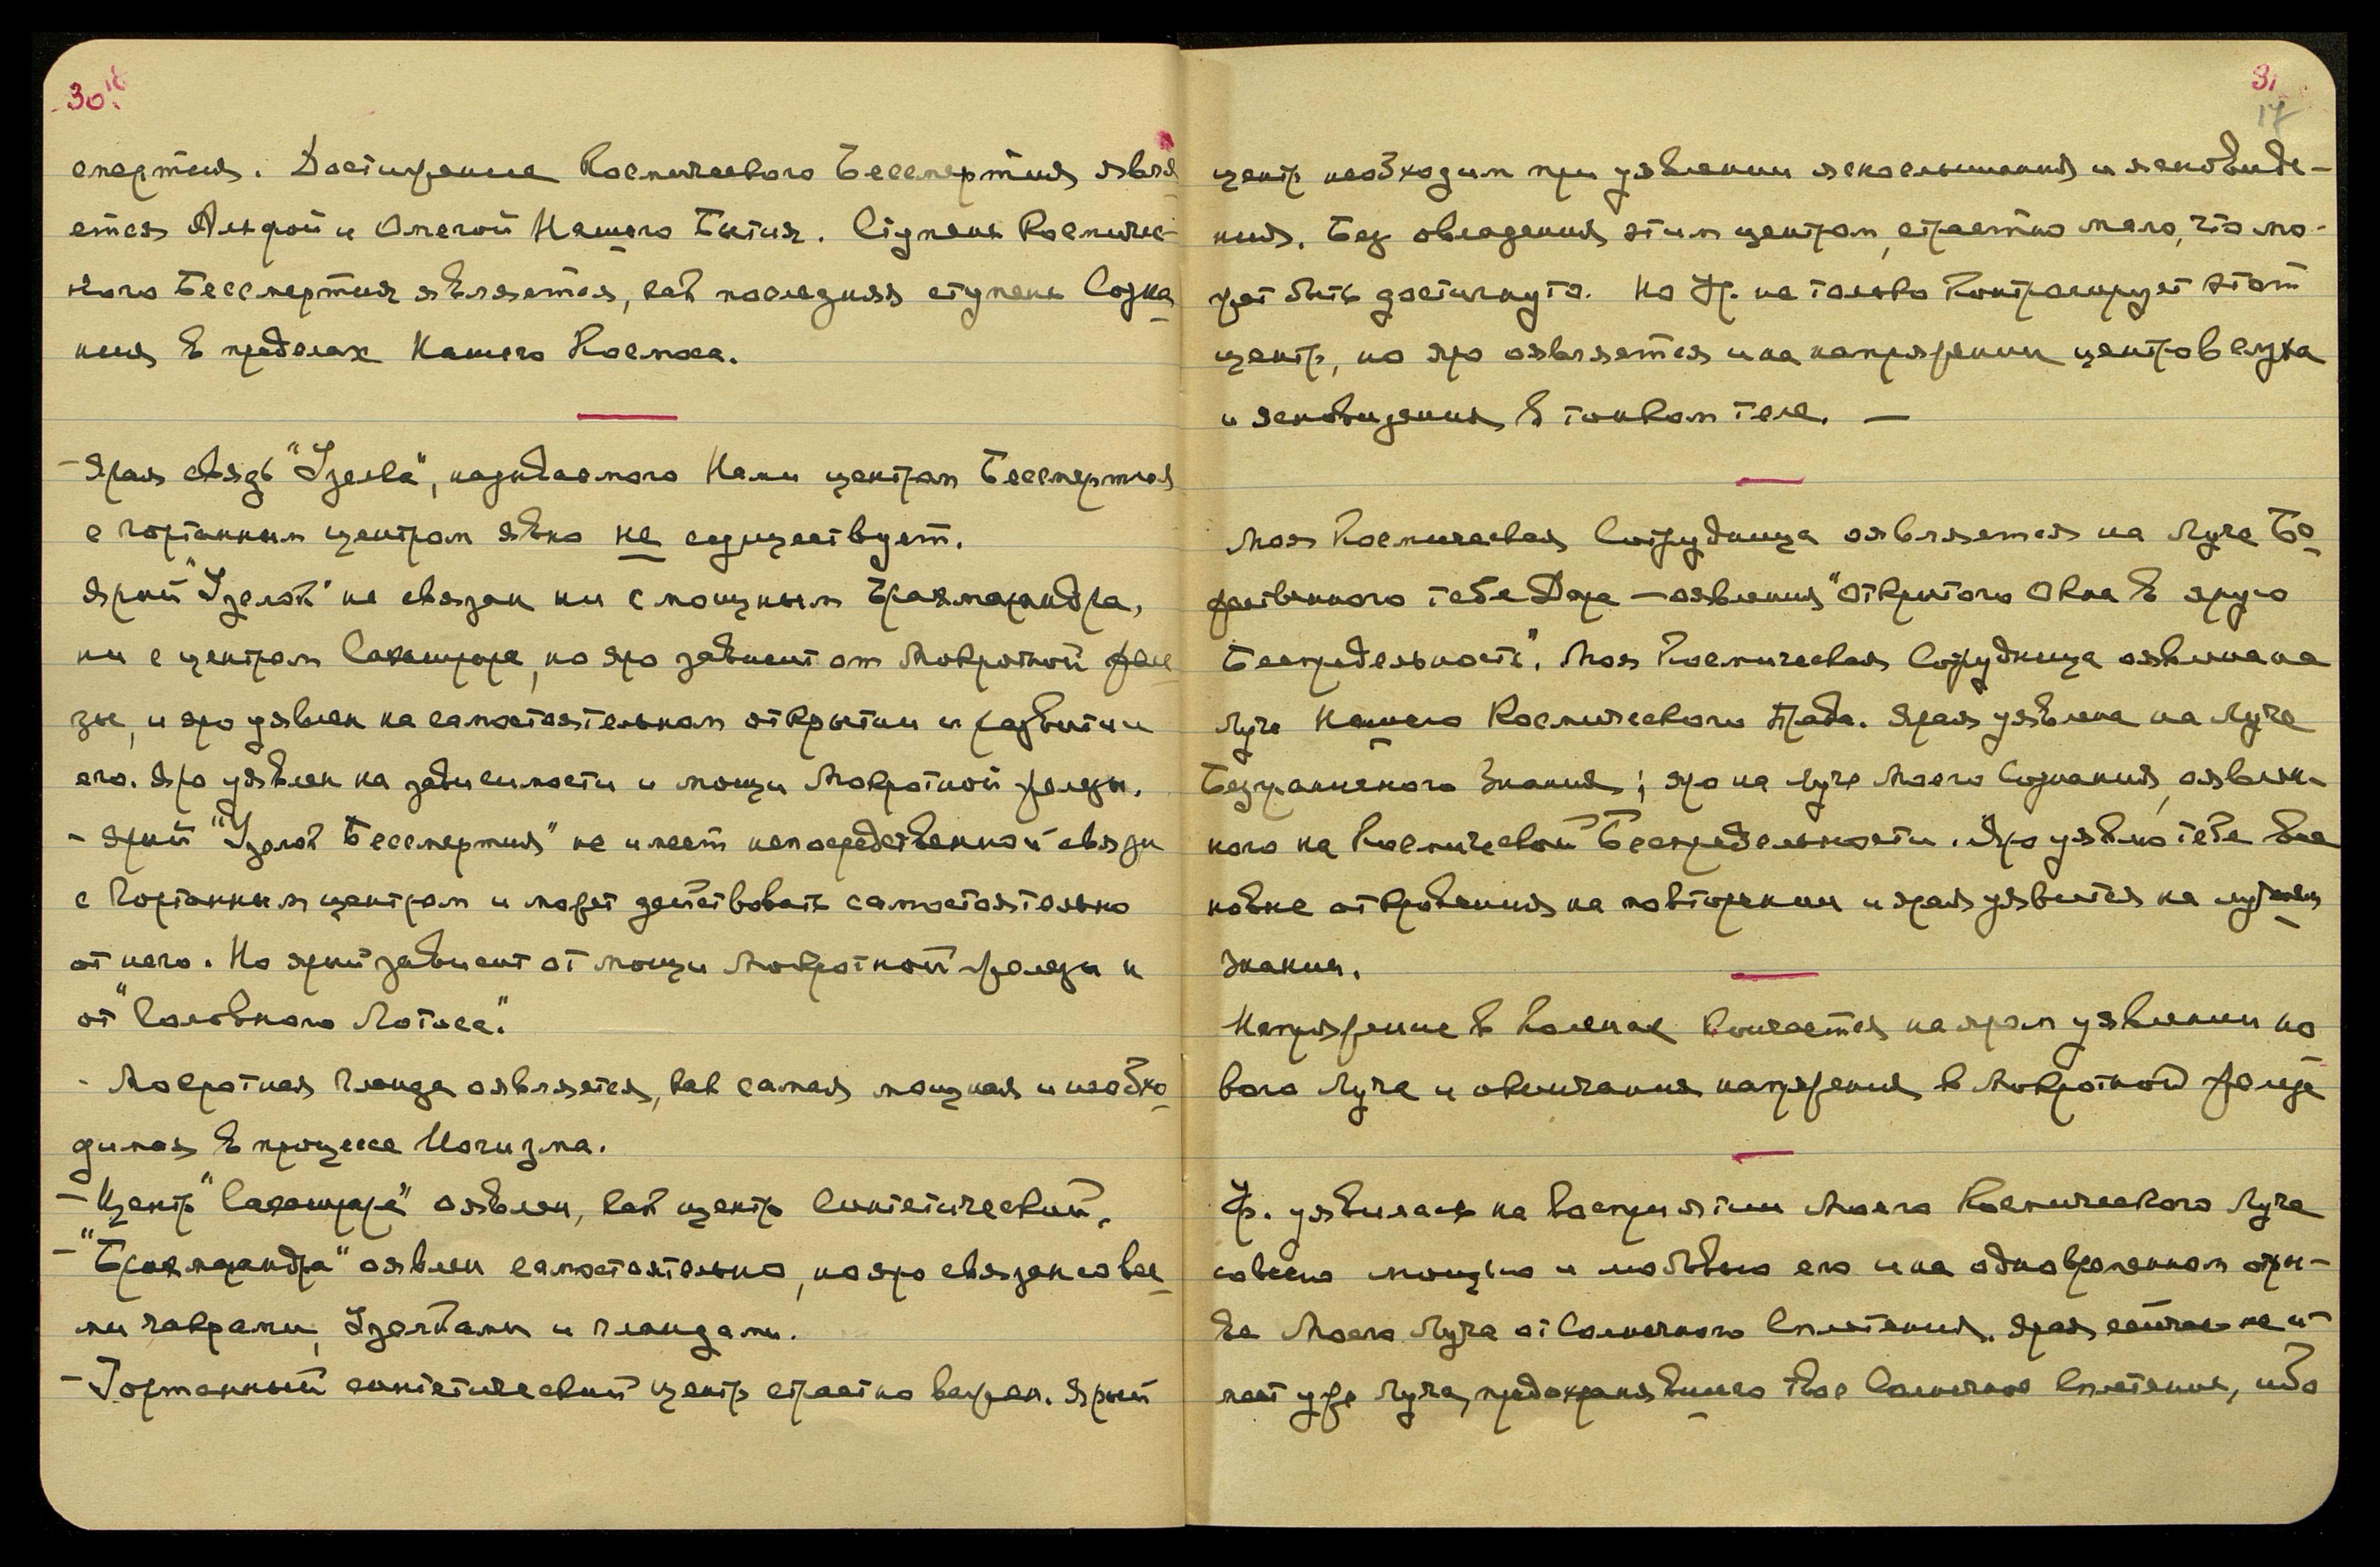 30 16
смертия. Достижение Космического Бессмертия явля
ется Альфой и Омегой Нашего Бытия. Ступень Космиче-
ского Бессмертия является, как последняя ступень Созна
ния в пределах Нашего Космоса.
- Ярая связь "Узелка", называемого Нами центром Бессмертия
с гортанным центром явно не существует.
Ярый "Узелок" не связан ни с мощным Брахмарандра,
ни с центром Сахасрара, но яро зависит от Мокротной желе
зы, и яро уявлен на самостоятельном открытии и развитии
его. Яро уявлен на зависимости и мощи Мокротной железы.
- Ярый "Узелок Бессмертия" не имеет непосредственной связи
с Гортанным центром и может действовать самостоятельно
от него. Но ярый зависит от мощи Мокротной железы и
от "Головного Лотоса".
- Мокротная Гланда оявляется, как самая мощная и необхо
димая в процессе Йогизма.
- Центр "Сахасрара" оявлен, как центр Синтетический.
- "Брахмарандра" оявлен самостоятельно, но яро связан со все
ми чакрами, Узелками и гландами.
- Гортанный синтетический центр страстно важен. Ярый
31
17
центр необходим при уявлении яснослышания и ясновиде-
ния. Без овладения этим центром, страстно мало, что мо-
жет быть достигнуто. Но Ур. не только контролирует этот
центр, но яро оявляется и на напряжении центров слуха
и ясновидения в тонком теле. —
Моя Космическая Сотрудница оявляется на Луче Бо
жественного тебе Дара — оявления "Открытого Окна в ярую
Беспредельность". Моя Космическая Сотрудница оявлена на
Луче Нашего Космического Права. Ярая уявлена на Луче
Безграничного Знания; яро на Луче Моего Сознания, оявлен-
ного на Космической Беспредельности. Яро уявлю тебе все
новые откровения на повторении и ярая уявится на
Знании.
Напряжение в Коленах кончается на яром уявлении но
вого Луча и окончания напряжения в Мокротной железе
Ур. уявилась на восприятии Моего Космического Луча
со всею мощью и любовью его и на одновременном отры-
ве Моего Луча от Солнечного Сплетения. Ярая сейчас не и-
меет уже Луча, предохранявшего твое Солнечное Сплетение, ибо